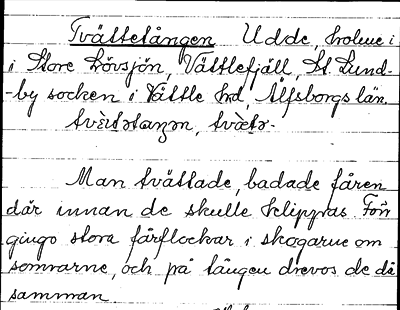 Tvättetången Udde, holme i
i Store Lövsjön, Vättlefjäll, St. Lund-
-by socken i Vättle hd, Älfsborgs län.
Man tvättade, badade fåren
där innan de skulle klippas Förr
gingo stora fårflockar i skogarne om
somrarne, och på tången drevos de då
samman.